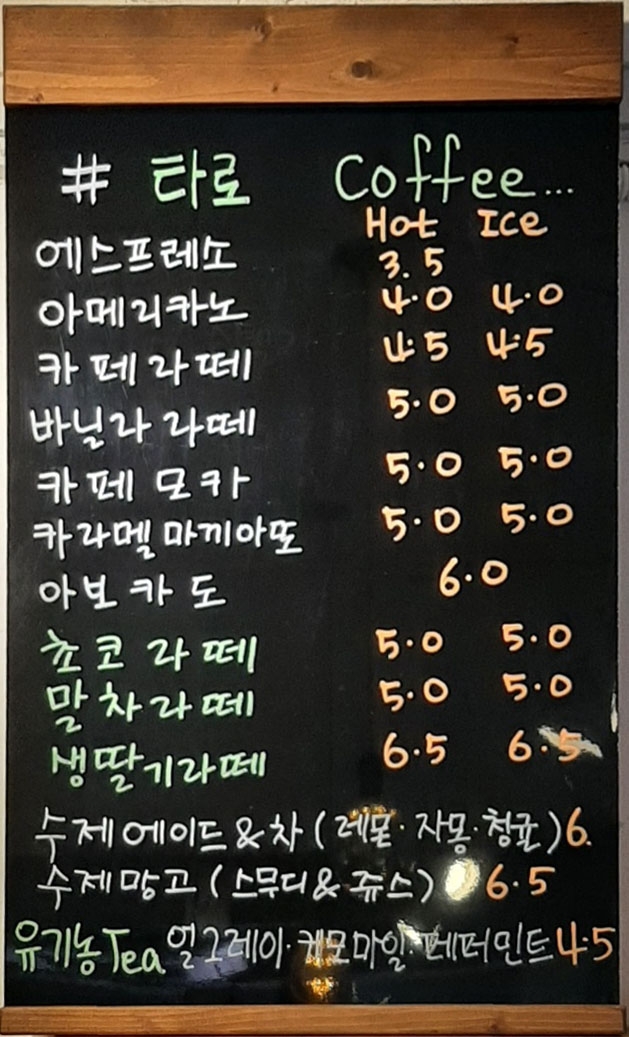 # 타로 Coffee...
Hot Ice
에스프레소 3.5
아메리카노 4.0 4.0
카페라떼 4.5 4.5
바닐라 라떼 5.0 5.0
카페모카 5.0 5.0
카라멜마끼아또 5.0 5.0
아보카도 6.0
쵸코라떼 5.0 5.0
말차라떼 5.0 5.0
생딸기라떼 6.5 6.5
수제에이드&차(레몬·자몽·청귤)6.
수제망고(스무디&쥬스) 6.5
유기농Tea 얼그레이·캐모마일·페퍼민트 4.5